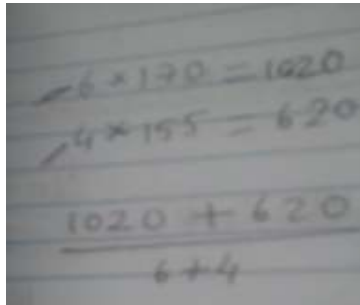 6 × 170 = 1020
4 × 155 = 620
1020 + 620
6 + 4